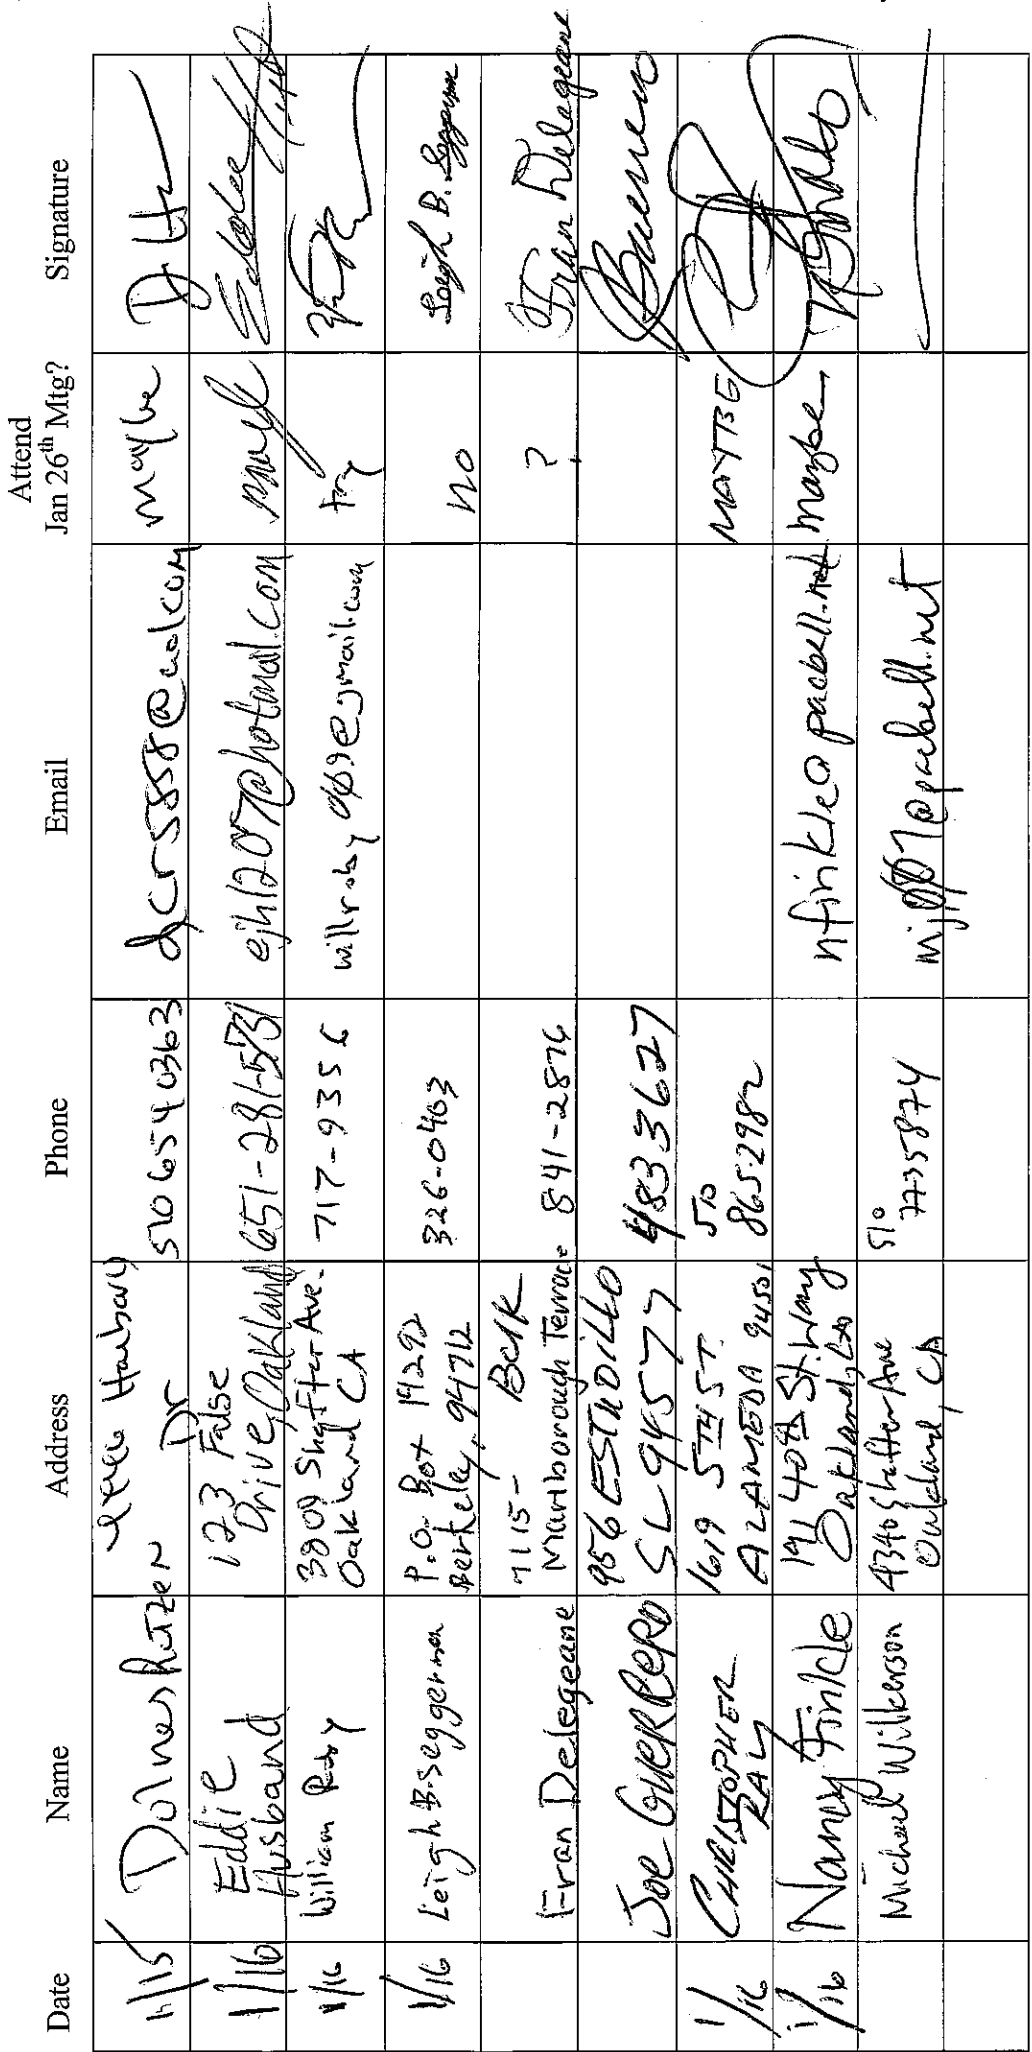 Date Name Address Phone Email Attend Jan 26th Mtg? Signature
1/15 Dolores 510 654 0363 dcr5858@aol.com maybe
Dr
1/16 Eddie Husband 123 False Drive, Oakland 651-281-5731 ejh1207@hotmail.com
1/16 William 3809 Shafter Ave. Oakland CA 717-9356 try
1/16 Leigh B. Seggerman P.O. Box 14292 Berkeley, 94712 326-0403 no Leigh B. Seggerman
Fran Delegeane 7115- Marlborough Terrace Berk 841-2876 ? Fran Delegeane
Joe Guerrero 956 ESTUDILLO SL 94577 4833627
1/16 CHRISTOPHER 1619 5TH ST. ALAMEDA 94501 510 865-2982 MAYBE
1/16 Nancy Finkle 191 40th St. Way Oakland, CA nfinkle@pacbell.net maybe
Michael Wilkerson 4340 Shafter Ave Oakland, CA 510 7735874